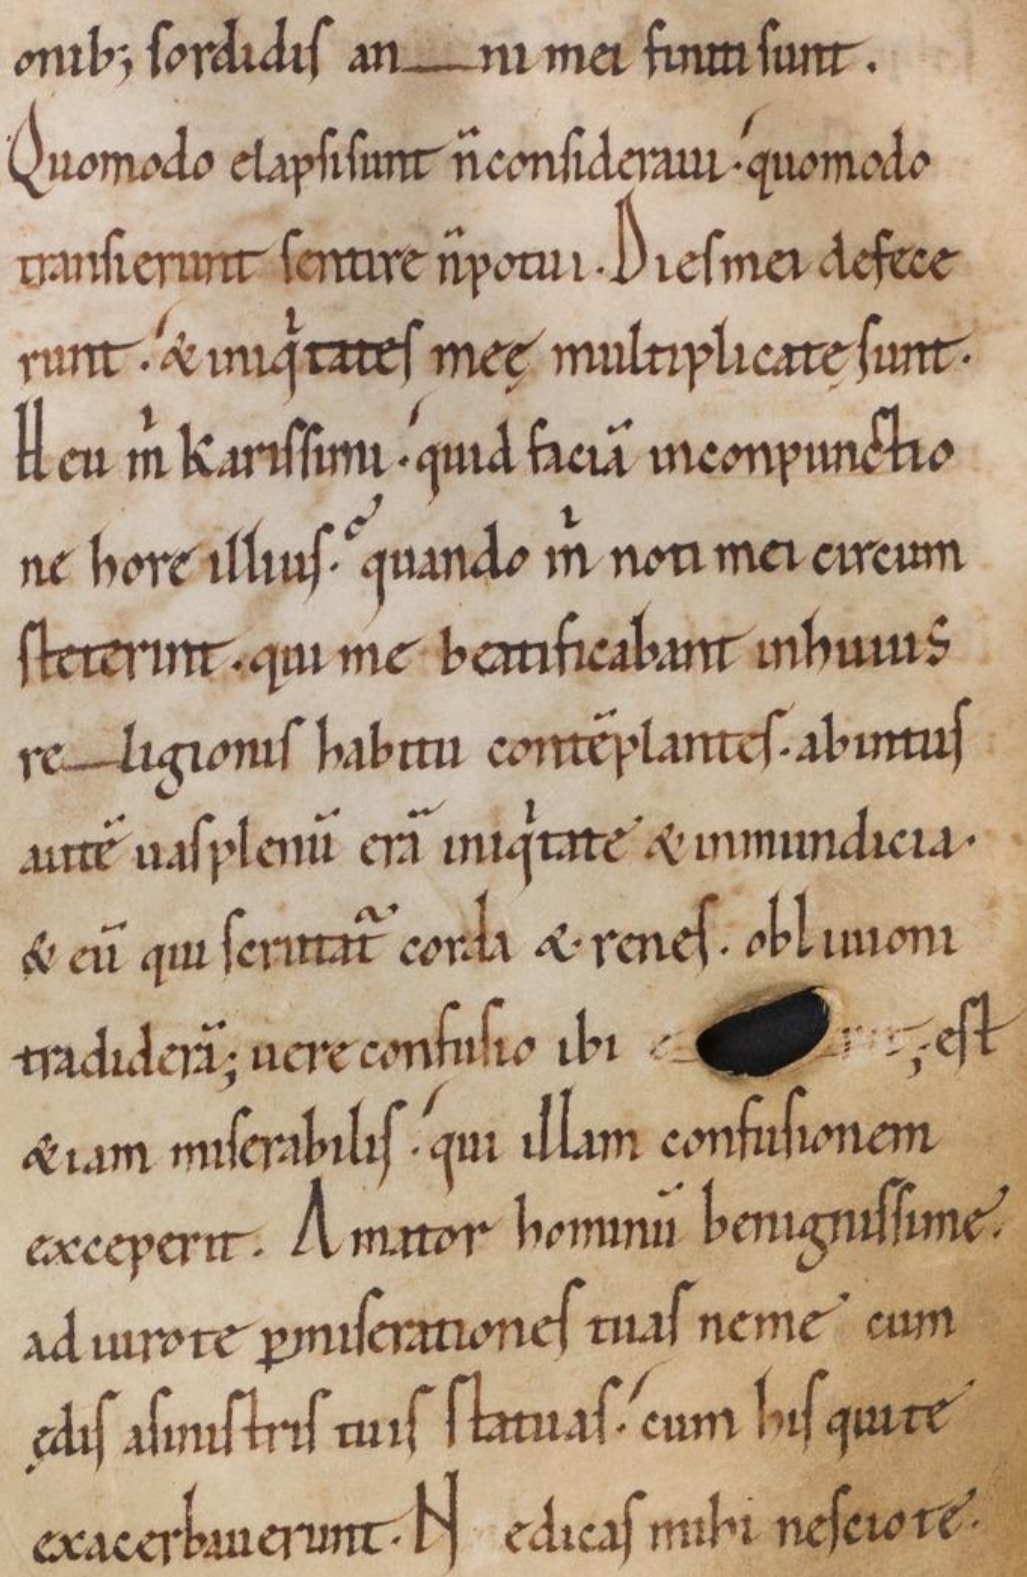 onib; sordidis an__ni mei finiti sunt.
Quomodo elapsi sunt n̄ consideraui. quomodo
transierunt sentire n̄ potui. Dies mei defece
runt. & iniq̍tates meę multiplicatę sunt.
Heu m̍ karissimi. quid faciā inconpunctio
ne hore illius. quando m̍ noti mei circum
steterint. qui me beatificabant inhuius
re__ligionis habitu contēplantes. abintus
autē uas plenū erā iniq̍tate & inmundicia.
& eū qui scrutat̃ corda & renes. obliuioni
tradiderā; uere confusio ibi ; est
& iam miserabilis. qui illam confusionem
exceperit. Amator hominū benignissime.
adiuro te ꝑ miserationes tuas ne me cum
ędis asinistris tuis statuas. cum his qui te
exacerbauerunt. N edicas mihi nescio te.